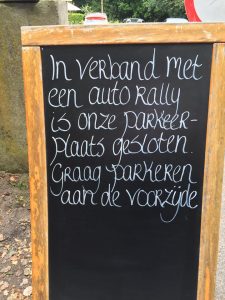 In verband met
een auto rally
is onze parkeer-
plaats gesloten.
Graag parkeren
aan de voorzijde